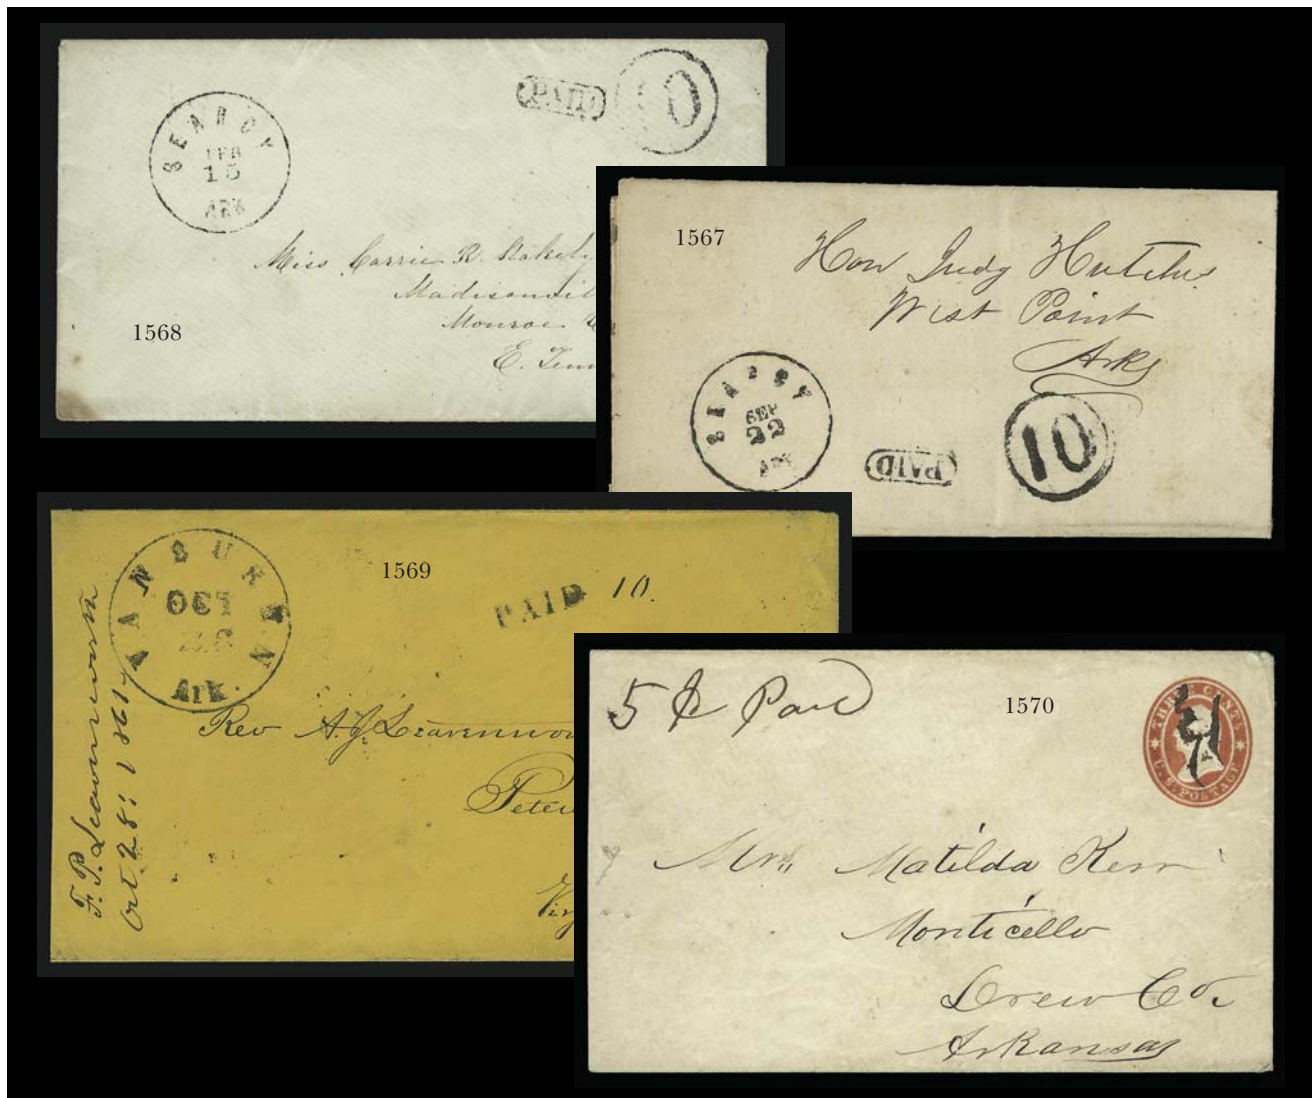 SEARCY
FEB
15
ARK
PAID
10
Miss Carrie R. Stakely
Madisonvil
Monroe
E. Tenn
1568
1567
Hon Judg Hutchs
West Point
Arks
SEARCY
SEP
22
ARK
PAID
10
1569
VAN BUREN
OCT
30
Ark.
PAID 10.
F. P. Leavenworth
Oct 28: 1861
Rev A. J. Leavenwor
Peter
Vir
1570
5 Paid
THREE CENTS
U.S. POSTAGE
Mrs. Matilda Kerr
Monticello
Drew Co.
Arkansas